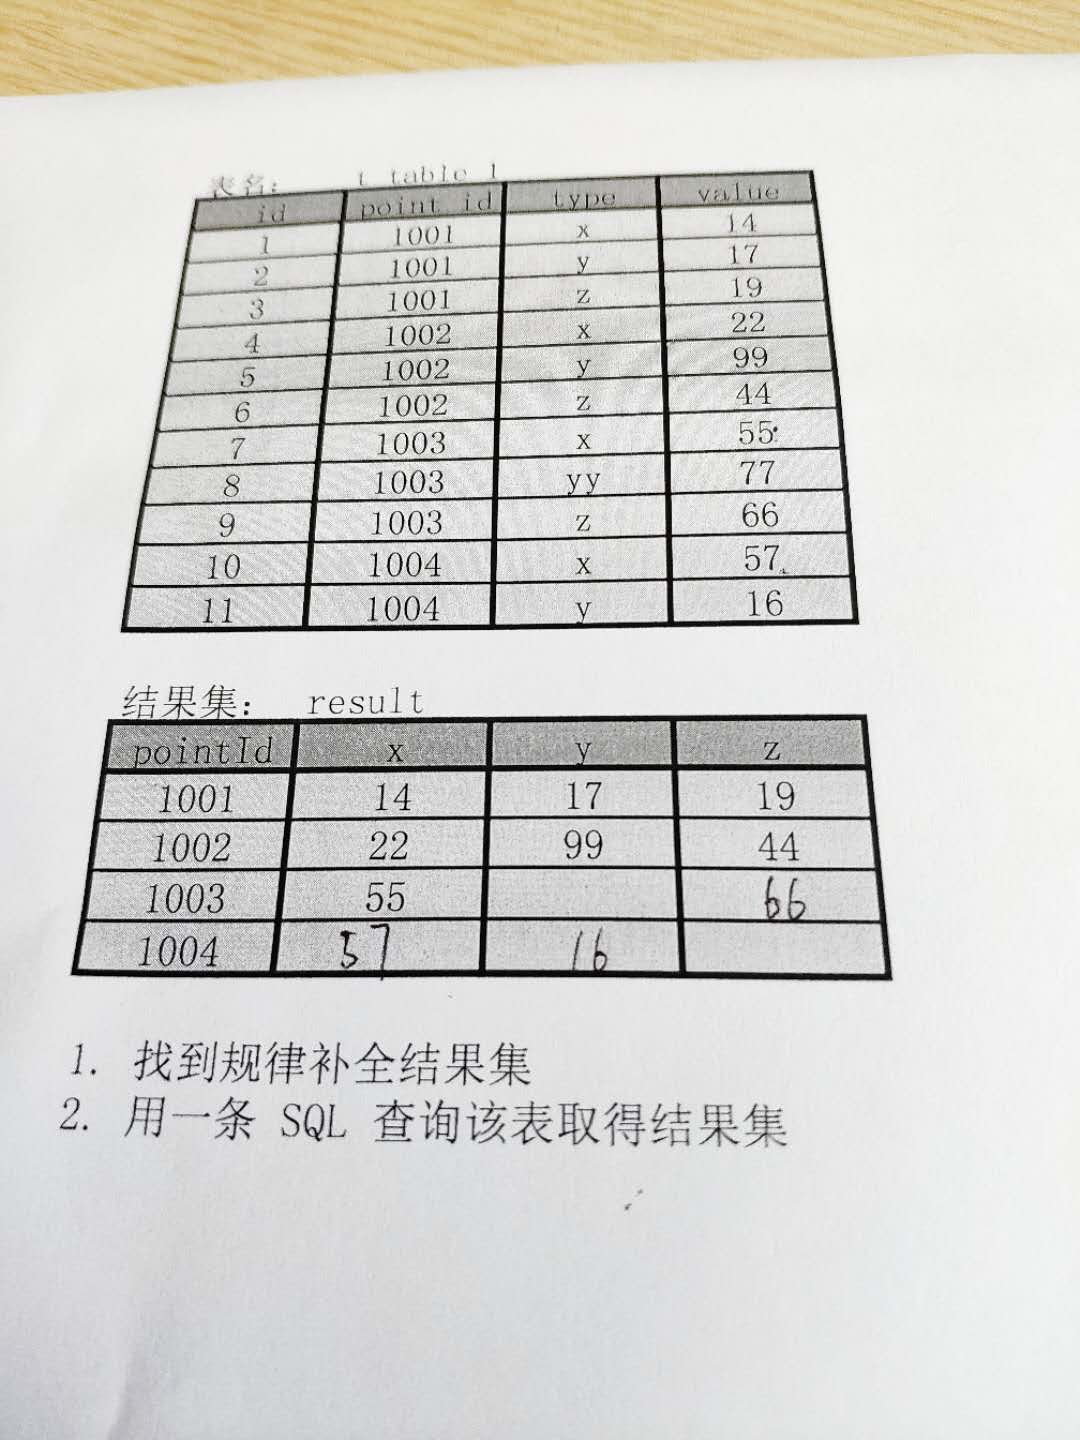 表名: t_table_1
id point_id type value
1 1001 x 14
2 1001 y 17
3 1001 z 19
4 1002 x 22
5 1002 y 99
6 1002 z 44
7 1003 x 55
8 1003 yy 77
9 1003 z 66
10 1004 x 57
11 1004 y 16
结果集: result
pointId x y z
1001 14 17 19
1002 22 99 44
1003 55 66
1004 57 16
1. 找到规律补全结果集
2. 用一条 SQL 查询该表取得结果集